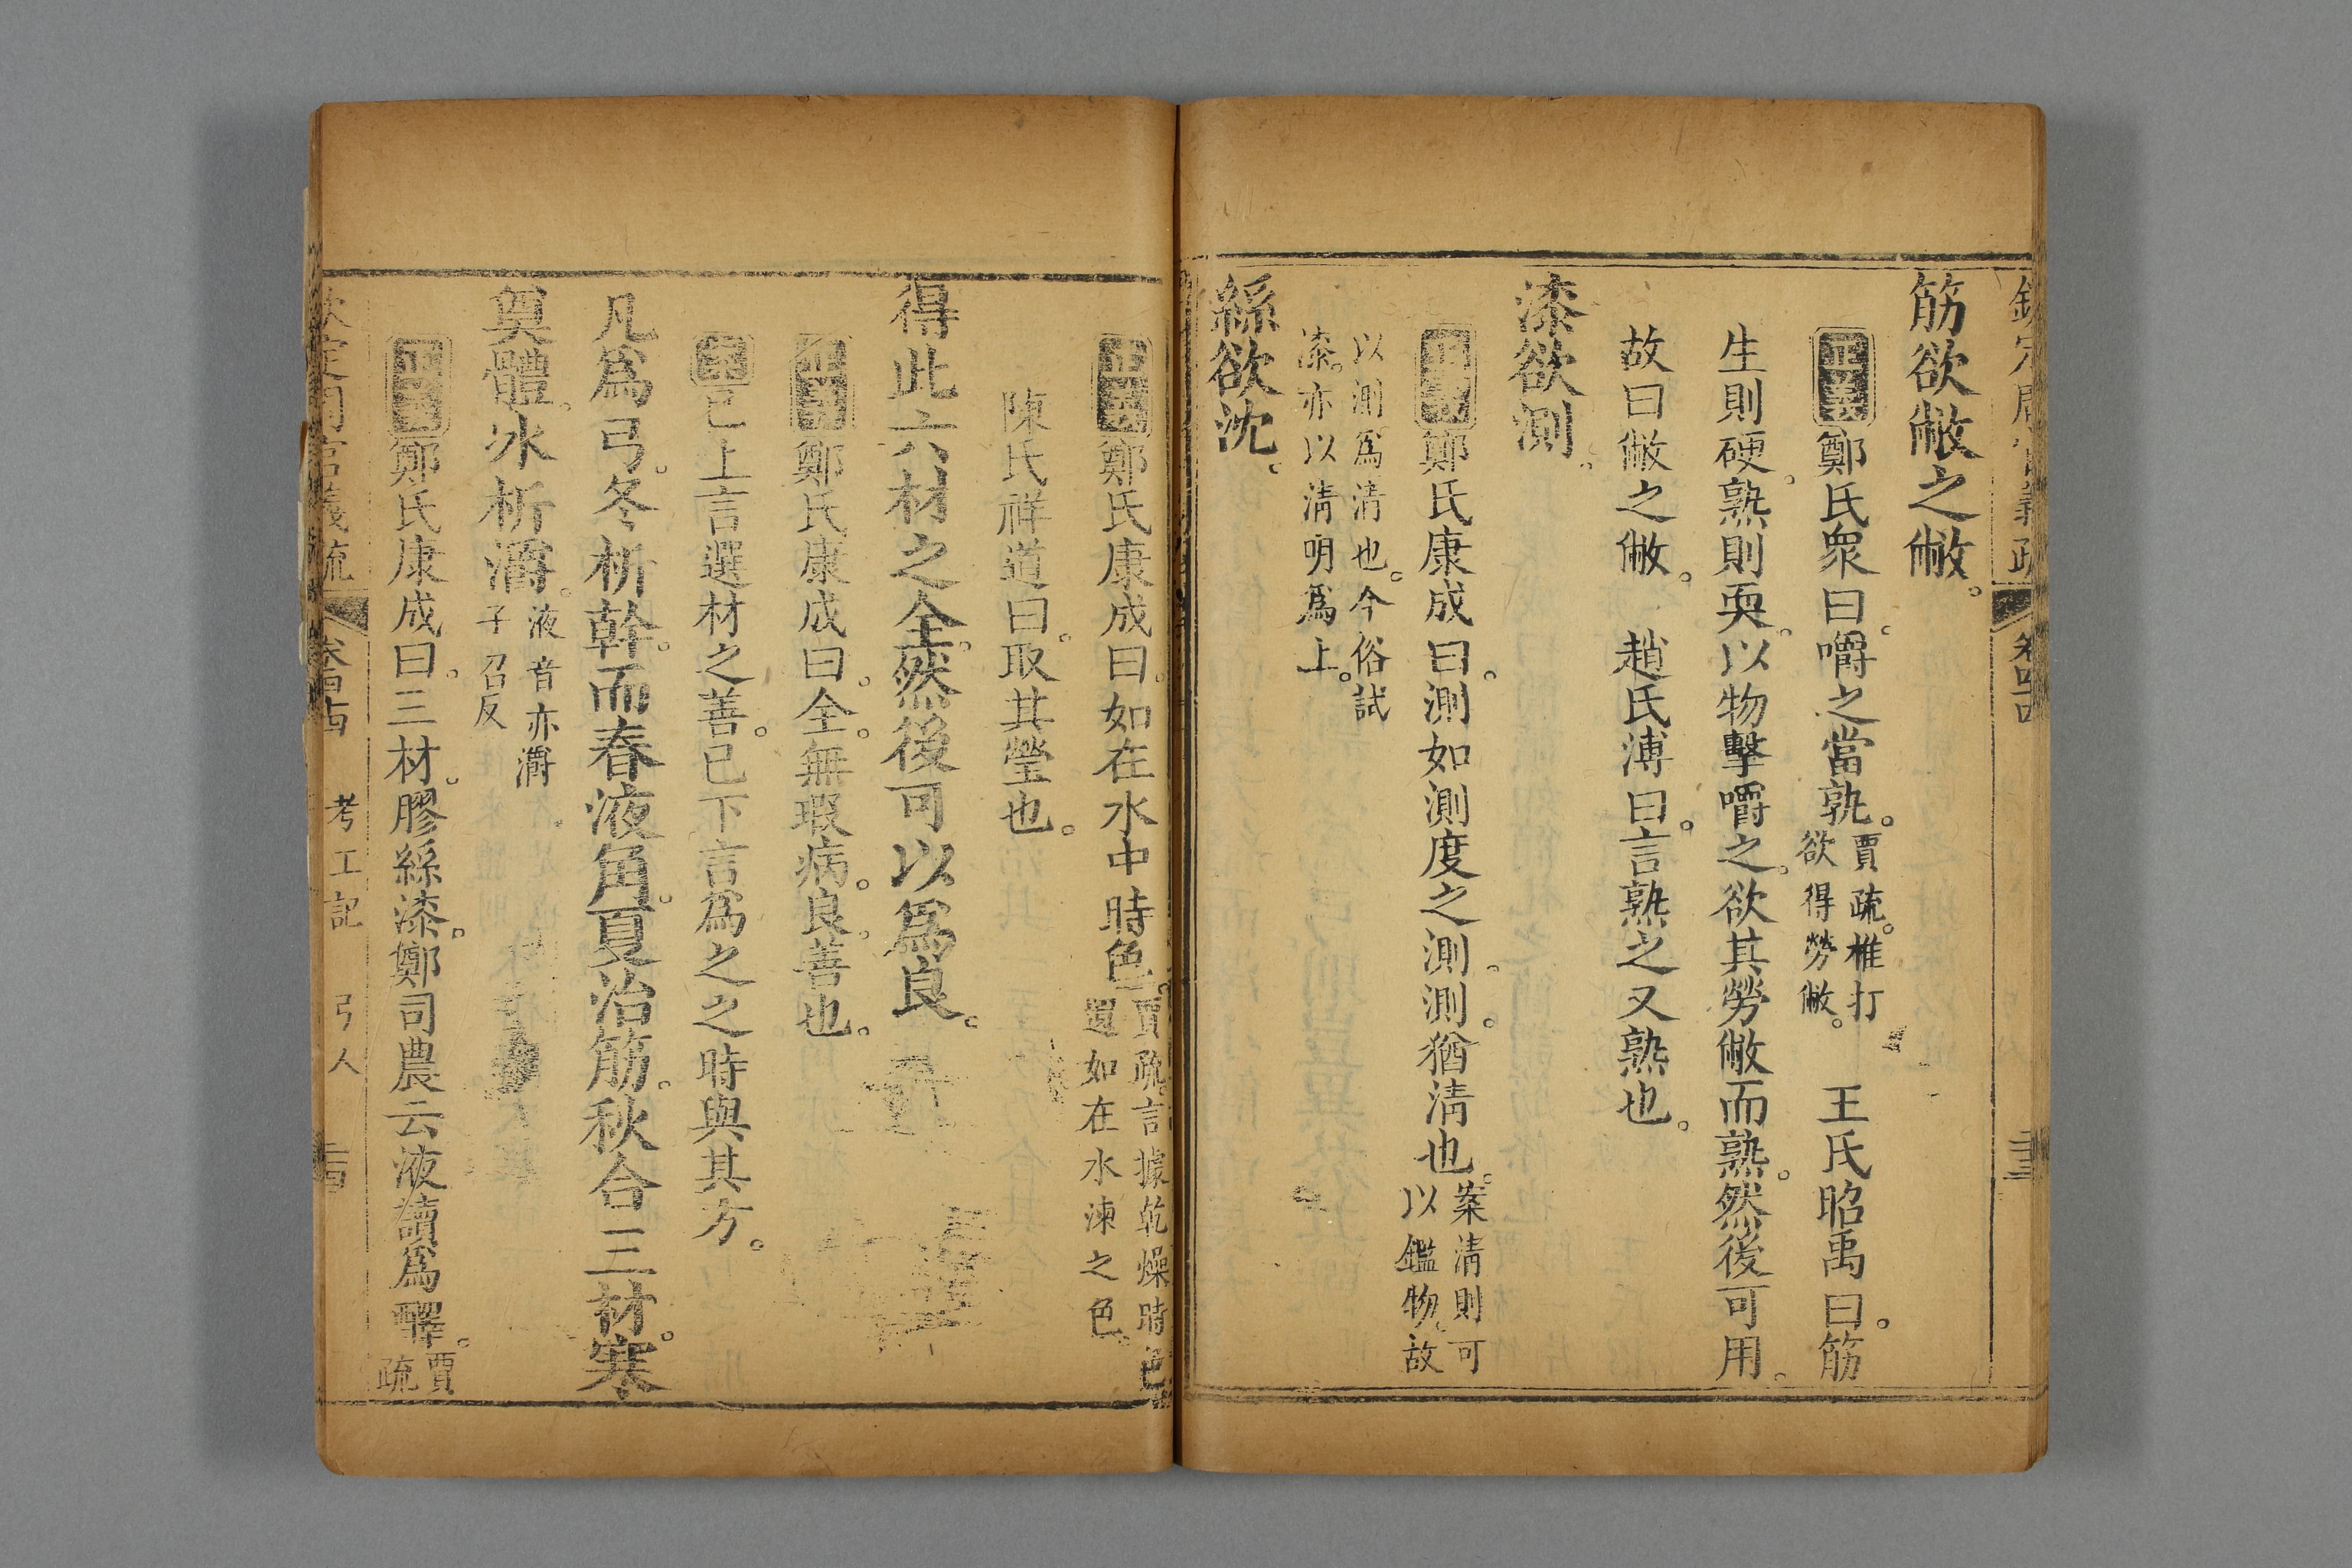 欽定周官義疏　卷四十四　三十三
筋欲敝之敝。
正義鄭氏衆曰。嚼之當孰。賈疏。椎打欲得勞敝。　王氏昭禹曰。筋
生則硬。熟則耎。以物擊嚼之。欲其勞敝而熟。然後可用。
故曰敝之敝。　趙氏溥曰。言熟之又熟也。
漆欲測。
正義鄭氏康成曰。測如測度之測。測猶清也。案清則可以鑑物。故
以測爲清也。今俗試漆。亦以清明爲上。
絲欲沈。
正義鄭氏康成曰。如在水中時色。賈疏。言據乾燥時色還如在水湅之色。
陳氏祥道曰。取其瑩也。
得此六材之全。然後可以爲良。
正義鄭氏康成曰。全。無瑕病。良。善也。
案已上言選材之善。已下言爲之之時與其方。
凡爲弓。冬析幹。而春液角。夏治筋。秋合三材。寒
奠體。冰析灂。液音亦灂子召反
正義鄭氏康成曰。三材。膠絲漆。鄭司農云液讀爲醳。賈疏
欽定周官義疏　卷四十四　考工記　弓人　三十四